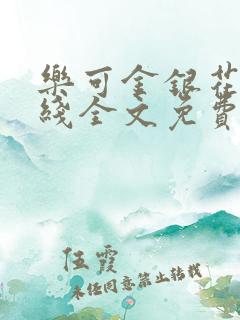 樂可金銀花
綫全文免費
伍霞
未任同意禁止转载